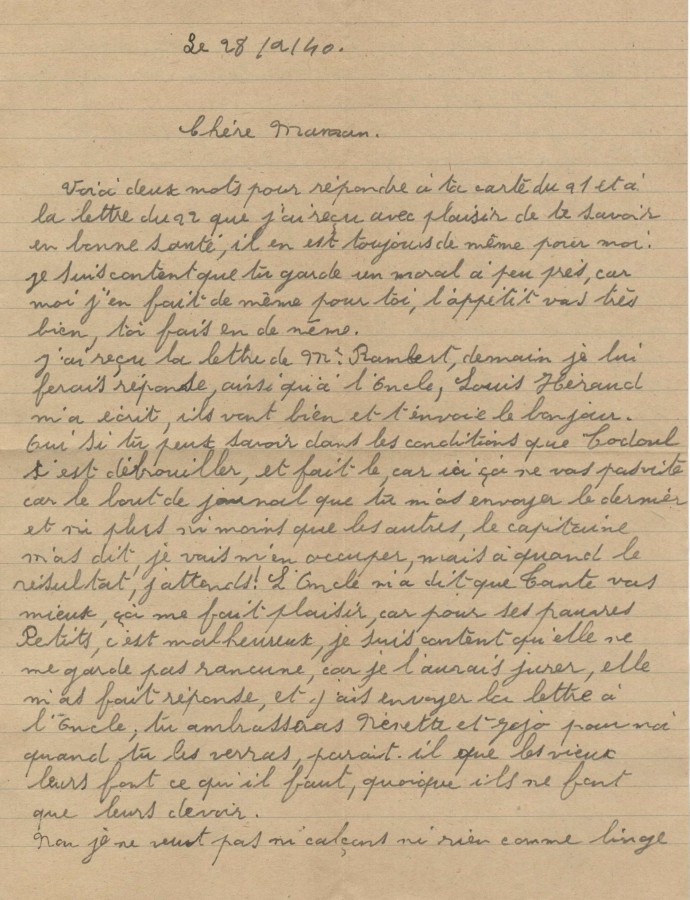 Le 28/2/40.
Chére Maman.
Voiçi deux mots pour répondre à ta carte du 21 et à
la lettre du 22 que j'ai reçu avec plaisir de te savoir
en bonne santé, il en est toujours de même pour moi.
je suis content que tu garde un moral a peu près, car
moi j'en fait de même pour toi, l'appétit vas très
bien, toi fais en de même.
j'ai reçu la lettre de Mr Rambert, demain je lui
ferais réponse, ainsi qu'à l'Oncle, Louis Héraud
m'a écrit, ils vont bien et t'envoie le bonjour.
Oui si tu peux savoir dans les conditions que Codoul
s'est débrouiller, et fait le, car ici ça ne vas pas vite
car le bout de journal que tu m'as envoyer le dernier
et ni plus ni moins que les autres, le capitaine
m'as dit, je vais m'en occuper, mais a quand le
résultat, j'attends! L'Oncle m'a dit que Tante vas
mieux, ça me fait plaisir, car pour ses pauvres
Petits, c'est malheureux, je suis content qu'elle ne
me garde pas rancune, car je l'aurais jurer, elle
m'as fait réponse, et j'ais envoyer la lettre à
l'Oncle, tu ambrasseras Nénette et Jojo pour moi
quand tu les verras, parait-il que les vieux
leurs font ce qu'il faut, quoique ils ne font
que leurs devoir.
Non je ne veut pas ni calçons ni rien comme linge